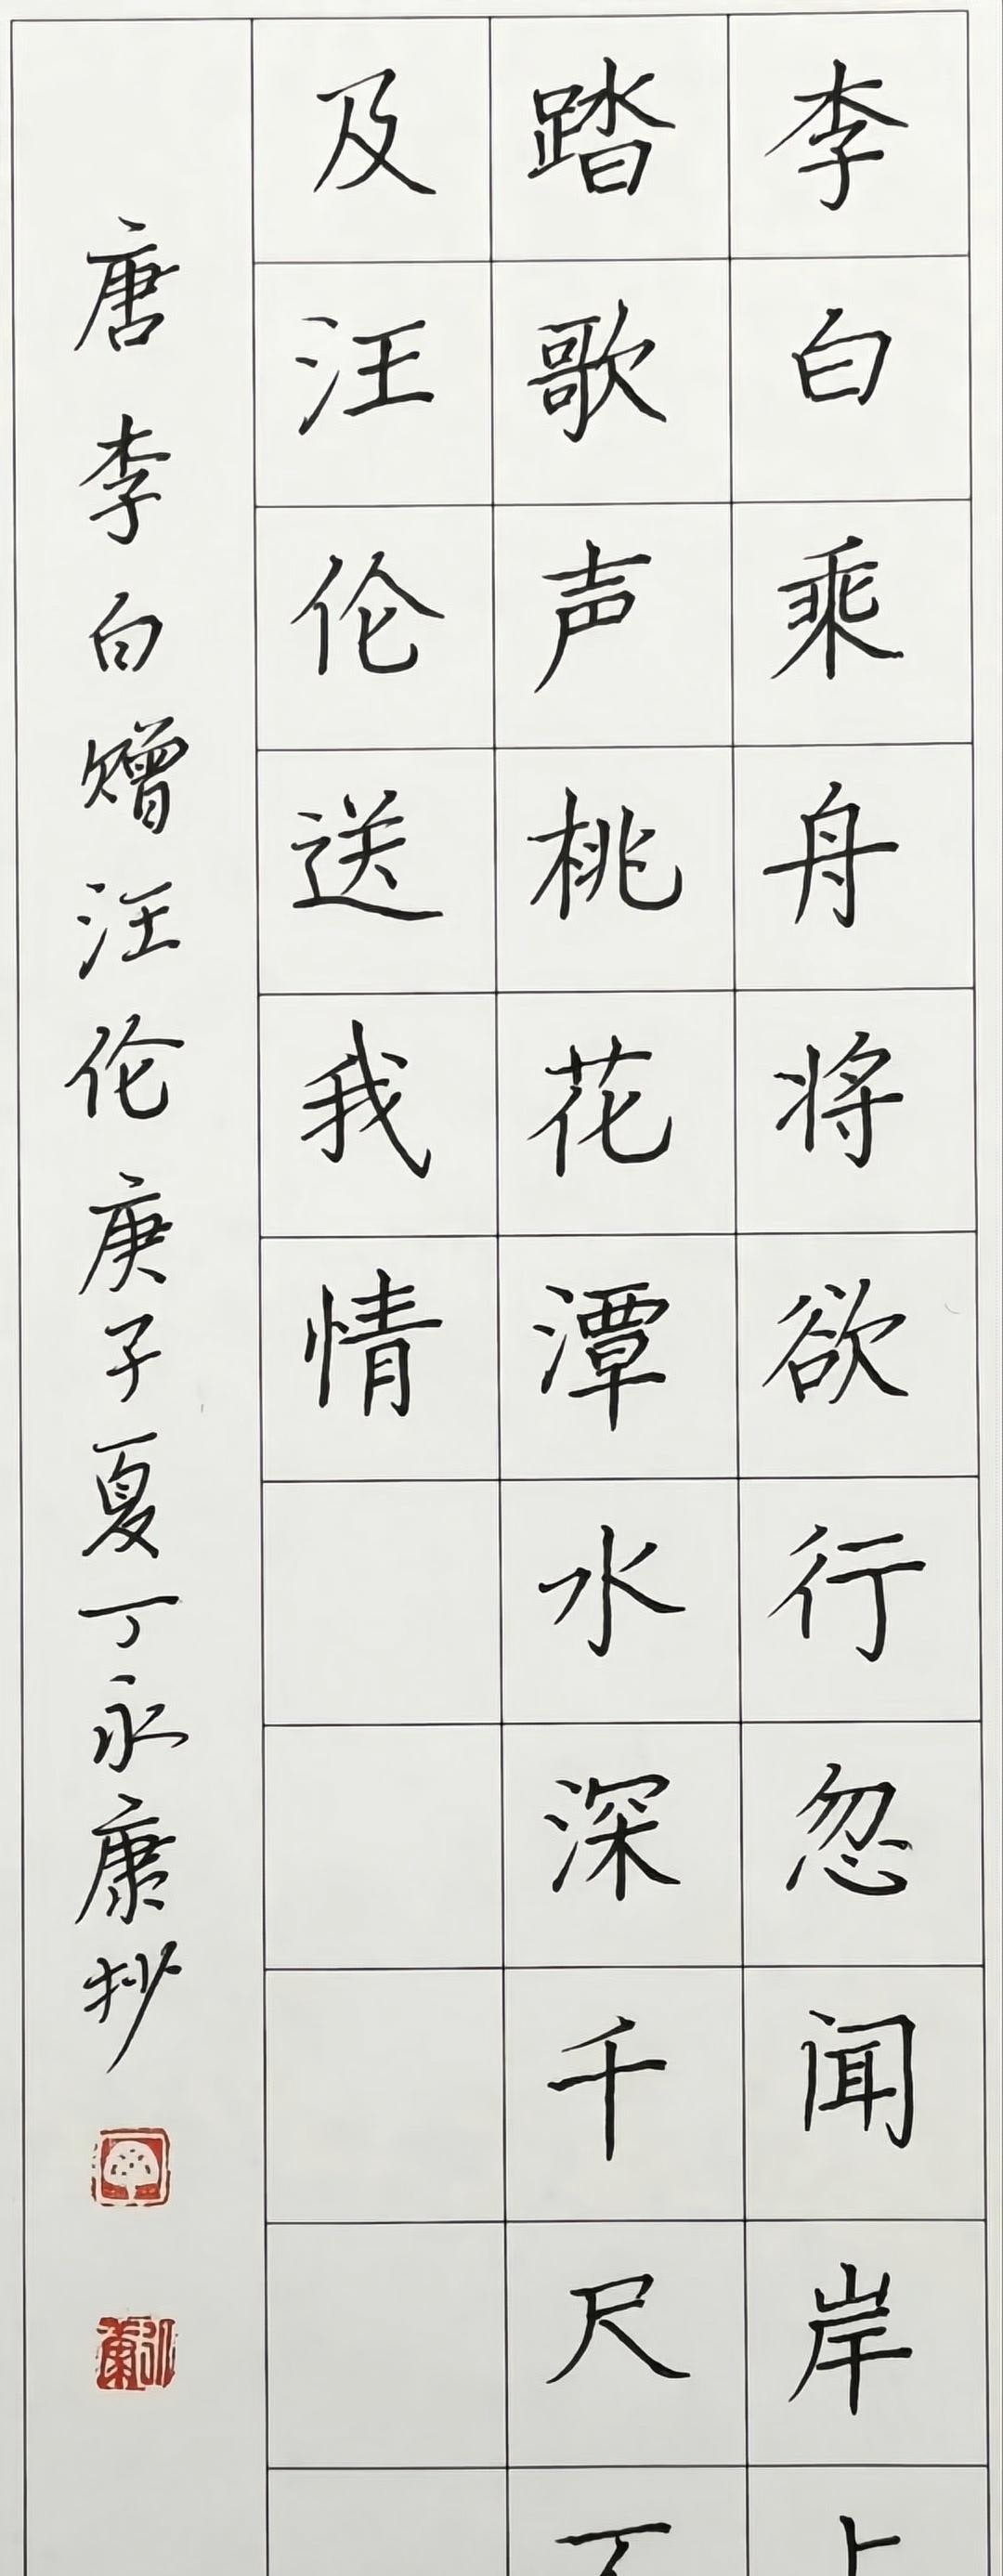 李白乘舟将欲行忽闻岸上
踏歌声桃花潭水深千尺不
及汪伦送我情
唐李白赠汪伦庚子夏丁永康抄